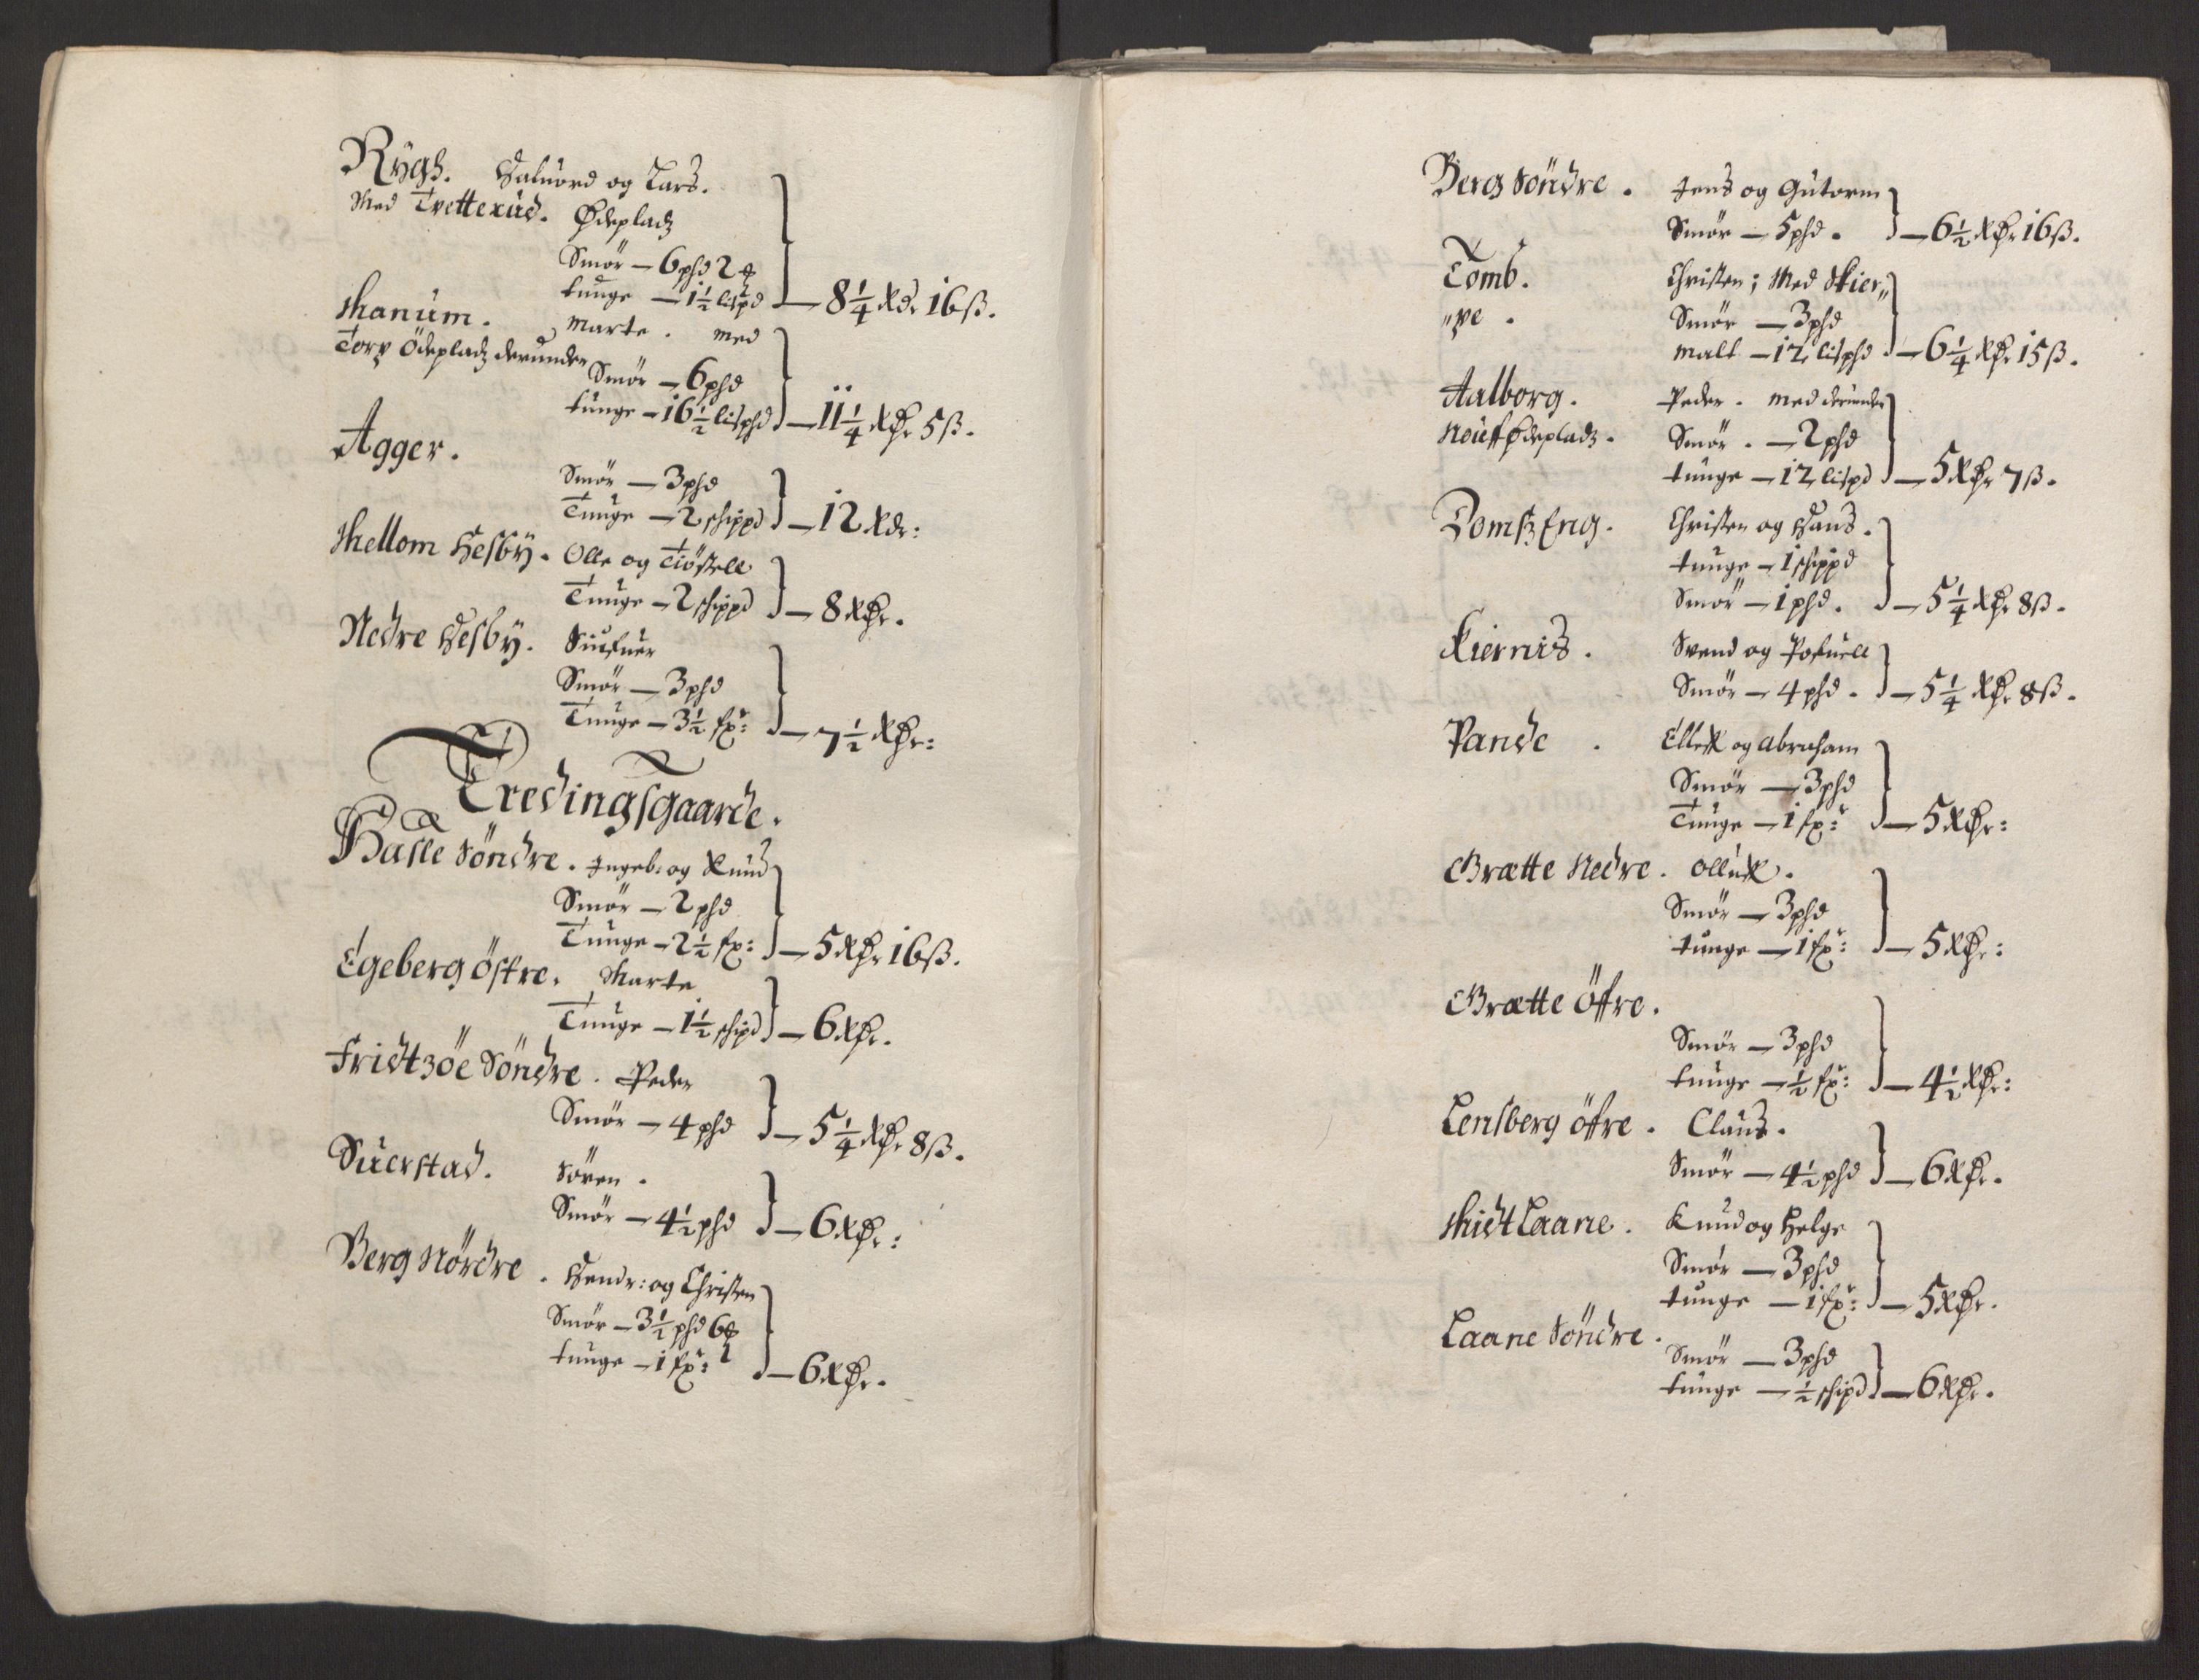 Rÿgh. Haluord og Lars.
Med Tvetterud. Ødepladz
Smör — 6 phd 2 ℔
tunge — 1½ lispd — 8¼ Rdr 16 ß.
Manum. Marte. med
Torp Ödepladz derunder
Smör — 6 phd
tunge — 16½ lisphd — 11¼ Rdr 5 ß.
Agger.
Smör — 3 phd
Tunge — 2 schippd — 12 Rdr:
Mellom Hesbÿ. Olle og Tiöstell
Tunge — 2 schippd — 8 Rdr.
Nedre Hesbÿ.
Smör — 3 phd
Tunge — 3½ fr: — 7½ Rdr:
Tredingsgaarde.
Hasle Söndre. Ingeb: og Knud
Smör — 2 phd
Tunge — 2½ fr: — 5 Rdr 16 ß.
Egeberg Östre. Marte
Tunge — 1½ schipd — 6 Rdr.
Fridtzöe Söndre. Peder
Smör — 4 phd — 5¼ Rdr 8 ß.
Suerstad. Sören.
Smör — 4½ phd — 6 Rdr:
Berg Nördre. Hendr: og Christen
Smör — 3½ phd 6 ℔
tunge — 1 fr: — 6 Rdr.
Berg Söndre. Jens og Gutorm
Smör — 5 phd. — 6½ Rdr 16 ß.
Tomb. Christen; Med Skier„
„pe. Smör — 3 phd
malt — 12 lisphd — 6¼ Rdr 15 ß.
Aalborg. Peder. med derunder
Nöuff Ødepladz. Smör. — 2 phd
tunge — 12 lispd — 5 Rdr 7 ß.
Domß Eng. Christen og Hans.
tunge — 1 schippd
Smör — 1 phd. — 5¼ Rdr 8 ß.
Kiernis. Svend og Pofuell
Smör — 4 phd. — 5¼ Rdr 8 ß.
Pande. Elleff og abraham
Smör — 3 phd
Tunge — 1 fr: — 5 Rdr:
Grætte Nedre. Olluff.
Smör — 3 phd
tunge — 1 fr: — 5 Rdr:
Grætte Öfre.
Smör — 3 phd
tunge — ½ fr: — 4½ Rdr:
Lensberg öfre. Claus.
Smör — 4½ phd — 6 Rdr.
Midt Laane. Knud og Helge
Smör — 3 phd
tunge — 1 fr: — 5 Rdr.
Laane Söndre.
Smör — 3 phd
tunge — ½ schipd — 6 Rdr.